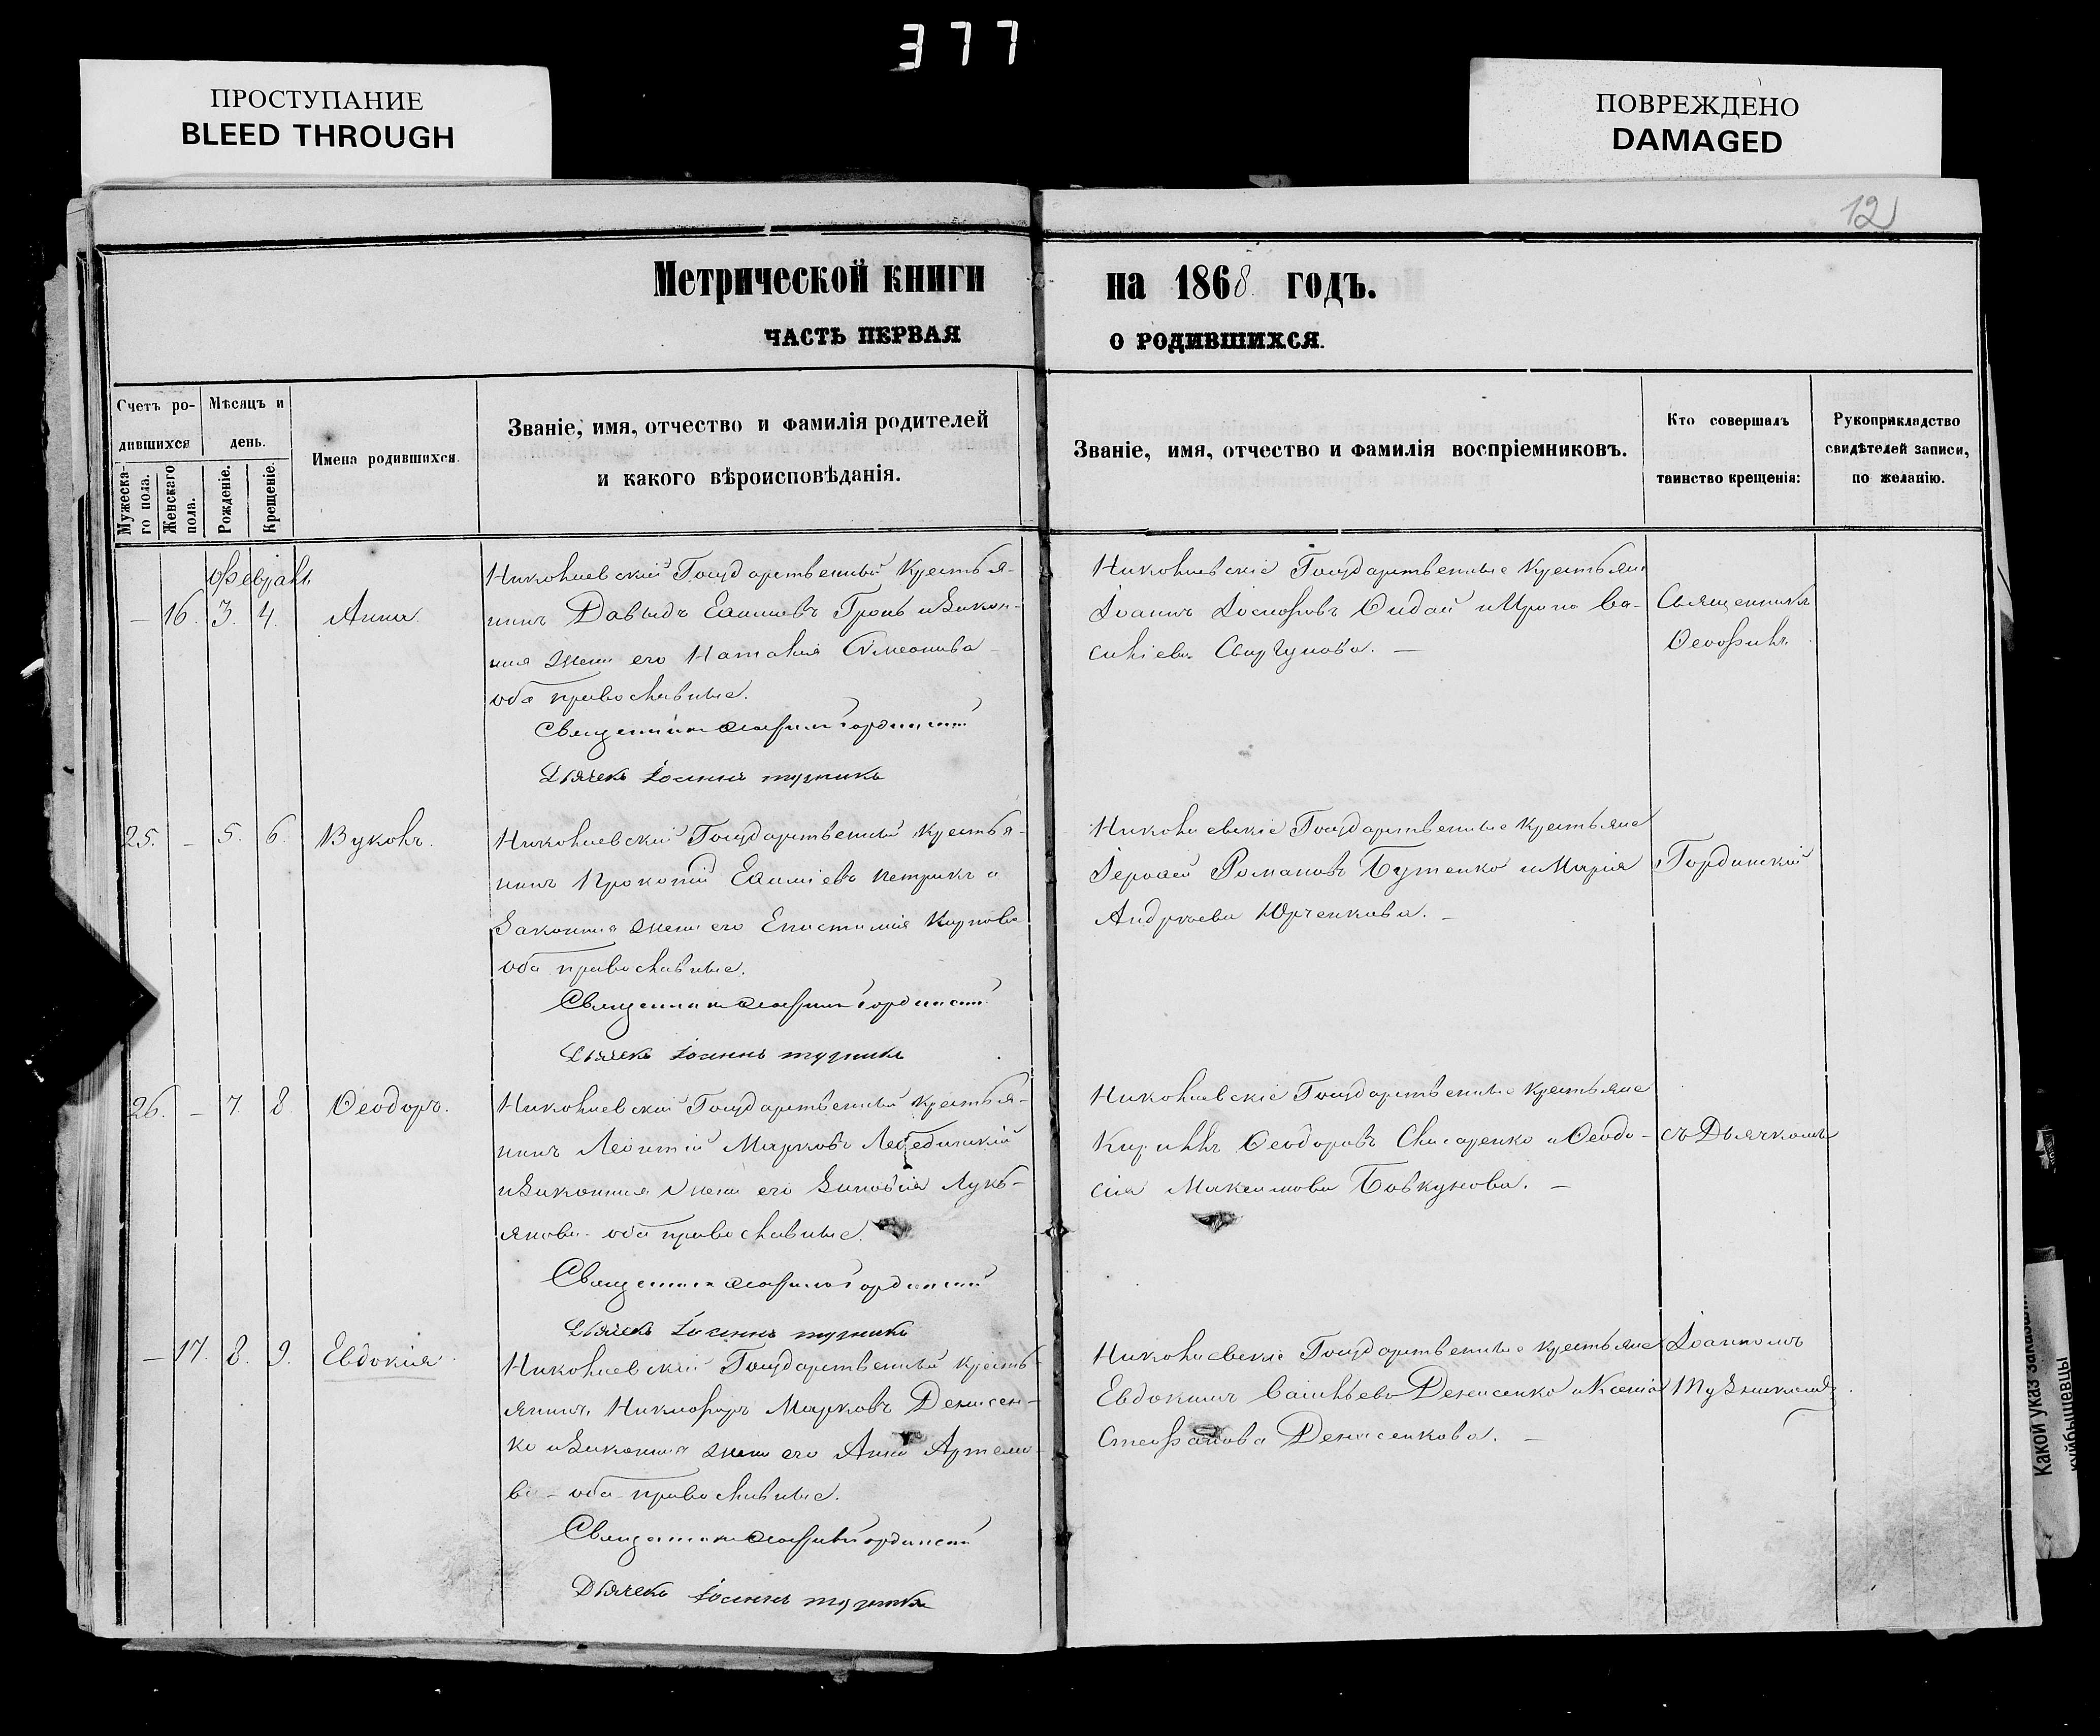 377
ПРОСТУПАНИЕ
BLEED THROUGH
ПОВРЕЖДЕНО
DAMAGED
12
Метрической книги на 1868 годъ.
ЧАСТЬ ПЕРВАЯ О РОДИВШИХСЯ.
Счетъ ро-
дившихся
Мужеска-
го пола.
Женскаго
пола.
Мѣсяцъ и
день.
Рожденіе.
Крещеніе.
Имена родившихся.
Званіе, имя, отчество и фамилія родителей
и какого вѣроисповѣданія.
Званіе, имя, отчество и фамилія воспріемниковъ.
Кто совершалъ
таинство крещенія:
Рукоприкладство
свидѣтелей записи,
по желанію.
Февраль
— 16. 3. 4. Анна.
Николаевскій Государственный Крестья-
нинъ Давыдъ Гронь и Закон-
ная жена его Наталія Симеонова
оба православные.
Священникъ Ѳеофилъ Гординскій
Дьячекъ Іоаннъ
Николаевскіе Государственные Крестьяне
Іоаннъ Іосифовъ и Ирина Ва-
силіева
Священникъ
Ѳеофилъ
25. — 5. 6. Вуколъ.
Николаевскій Государственный Крестья-
нинъ Прокопій Петрикъ и
Законная жена его Епистимія Карпова
оба православные.
Священникъ Ѳеофилъ Гординскій
Дьячекъ Іоаннъ
Николаевскіе Государственные Крестьяне
Романовъ Бутенко и Марія
Андреева Юрченкова. —
Гординскій
26. — 7. 8. Ѳеодоръ.
Николаевскій Государственный Крестья-
нинъ Леонтій Марковъ Лебединскій
и Законная жена его Зиновія Лукь-
янова оба православные.
Священникъ Ѳеофилъ Гординскій
Дьячекъ Іоаннъ
Николаевскіе Государственные Крестьяне
Кириллъ Ѳеодоровъ и Ѳеодо-
сія Максимова Бовкунова. —
съ Дьячкомъ
— 17. 8. 9. Евдокія.
Николаевскій Государственный Кресть-
янинъ Никифоръ Марковъ Денисен-
ко и Законная жена его Анна Артемо-
ва — оба православные.
Священникъ Ѳеофилъ Гординскій
Дьячекъ Іоаннъ
Николаевскіе Государственные Крестьяне
Евдокимъ Савельевъ Денисенко и Ксенія
Стефанова Денисенкова. —
Іоанномъ
Какой указ
куйбышевцы